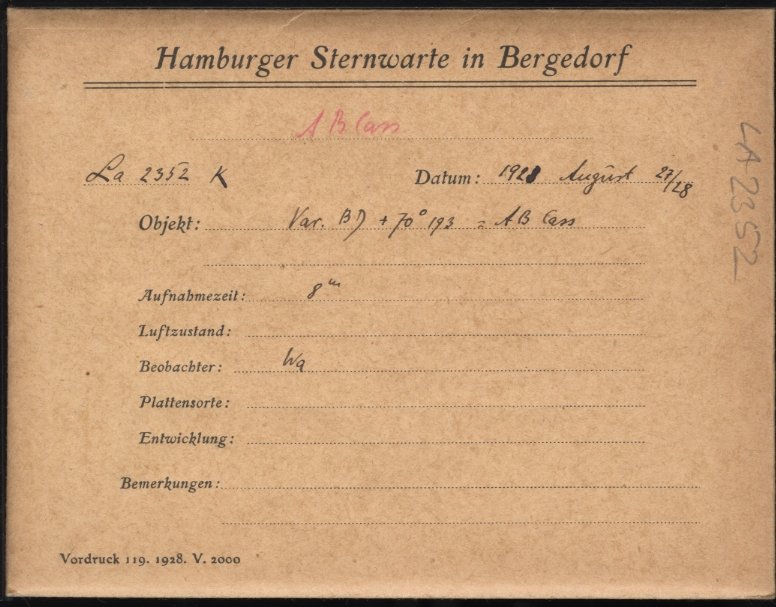 Hamburger Sternwarte in Bergedorf
AB Cass
La 2352 K Datum: 1928 August 27/28
Objekt: Var. BD +70° 193 = AB Cass
Aufnahmezeit: 8m
Luftzustand:
Beobachter: Wa
Plattensorte:
Entwicklung:
Bemerkungen:
Vordruck 119. 1928. V. 2000
LA 2352